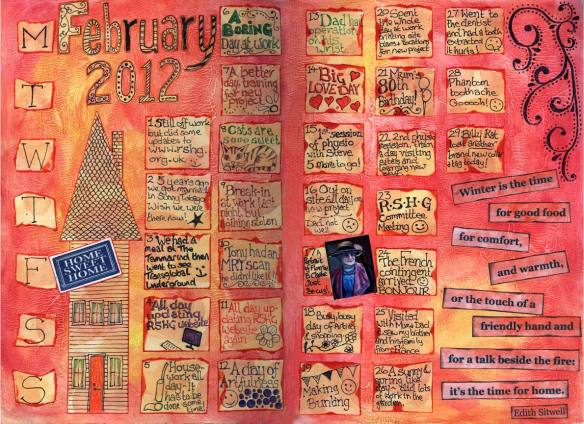 February
2012
M
T
W
T
F
S
S
HOME
SWEET
HOME
1 Still off work
but did some
updates to
www.rshg.
org.uk
2 5 years ago
we got married
in
Wish we were
there now!
3 We had a
meal at The
Tamarind then
went to see
Transglobal
Underground
4 All day
updating
RSHG website
5 House-
work all
day. It
has to be
done some
time!
6 A
BORING
Day at work
7 A better
day, training
for new
project
8 Cats are
sooo sweet
9 Break-in
at work last
night, but
nothing stolen
10 Tony had an
MRI scan
he didn't like it!
11 All day up-
dating RSHG
website
again
12 A day of
Artfulness
13 Dad has
operation
on his
wrist
14 Big
LOVE DAY
15 1st session
of physio
with Steve
5 more to go!
16 Out on
site all day on
new project
Did not
go well
17 A
Just
18 Busy lousy
day of
& shopping
19
Making
Bunting
20 Spent
the whole
day at work
printing site
plans & location
for new project
21 Mum's
80th
Birthday!
22 2nd physio
session, then
a day visiting
sites and
learning new
23
R·S·H·G
Committee
Meeting
24
The French
contingent
arrived
BONJOUR
25 Visited
with Mum & Dad
& saw my brother
and his family
from France
26 A sunny &
spring like
day - did lots
of work in the
garden
27 Went to
the dentist
and had a tooth
extracted
it hurts!
28
Phantom
toothache
Ooooh!
29 Billy Kat
took another
brand new collar
& tag today!
Winter is the time
for good food
for comfort,
and warmth,
or the touch of a
friendly hand and
for a talk beside the fire:
it's the time for home.
Edith Sitwell